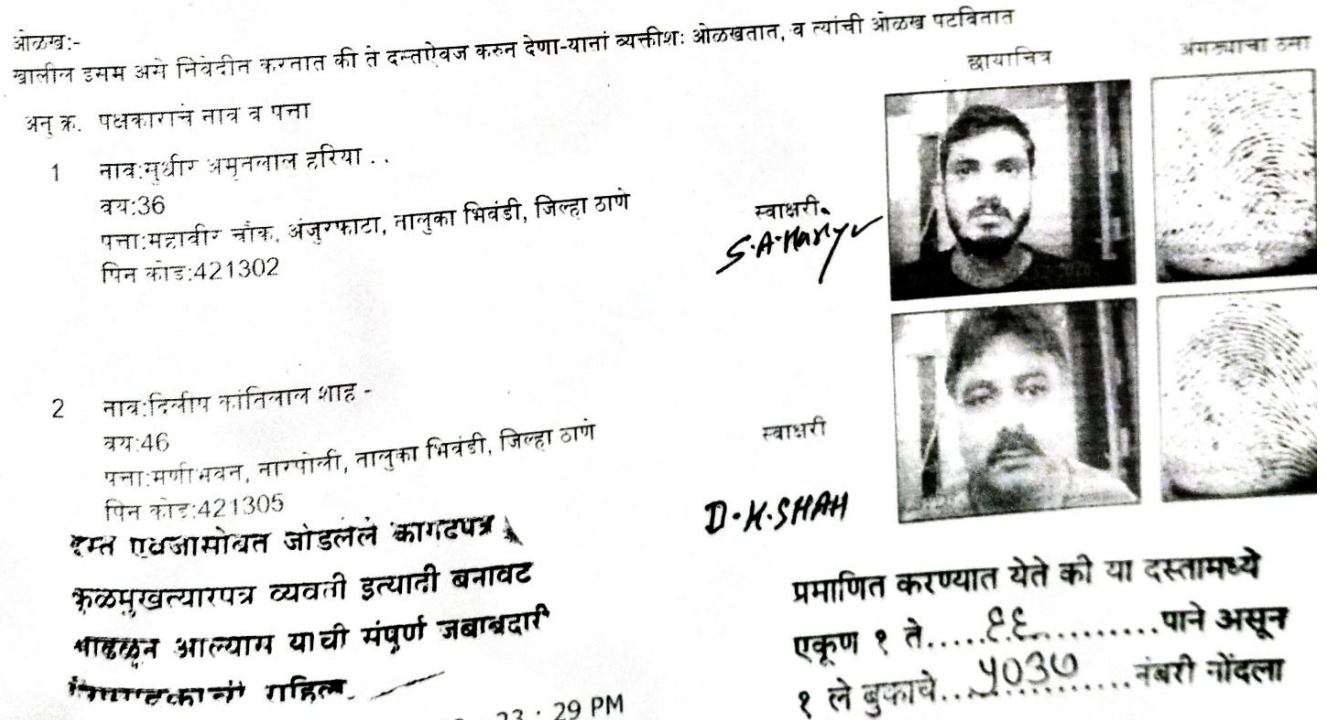 ओळख:-
खालील इसम असे निवेदीत करतात की ते दस्तऐवज करुन देणा-यानां व्यक्तीशः ओळखतात, व त्यांची ओळख पटवितात
छायाचित्र
अंगठ्याचा ठसा
अनु क्र. पक्षकाराचे नाव व पत्ता
1 नाव:सुधीर अमृतलाल हरिया . .
वय:36
पत्ता:महावीर चौक, अंजुरफाटा, तालुका भिवंडी, जिल्हा ठाणे
पिन कोड:421302
स्वाक्षरी
S.A.Hariya
2 नाव:दिलीप कांतिलाल शाह -
वय:46
पत्ता:मणीभवन, नारपोली, तालुका भिवंडी, जिल्हा ठाणे
पिन कोड:421305
स्वाक्षरी
D.K.SHAH
दस्त एवजासोबत जोडलेले कागदपत्र
कुळमुखत्यारपत्र व्यक्ती इत्यादी बनावट
आढळून आल्यास याची संपूर्ण जबाबदारी
राहिल
प्रमाणित करण्यात येते की या दस्तामध्ये
एकूण १ ते.....९९..........पाने असून
१ ले बुकाचे....५०३७......नंबरी नोंदला
23 : 29 PM